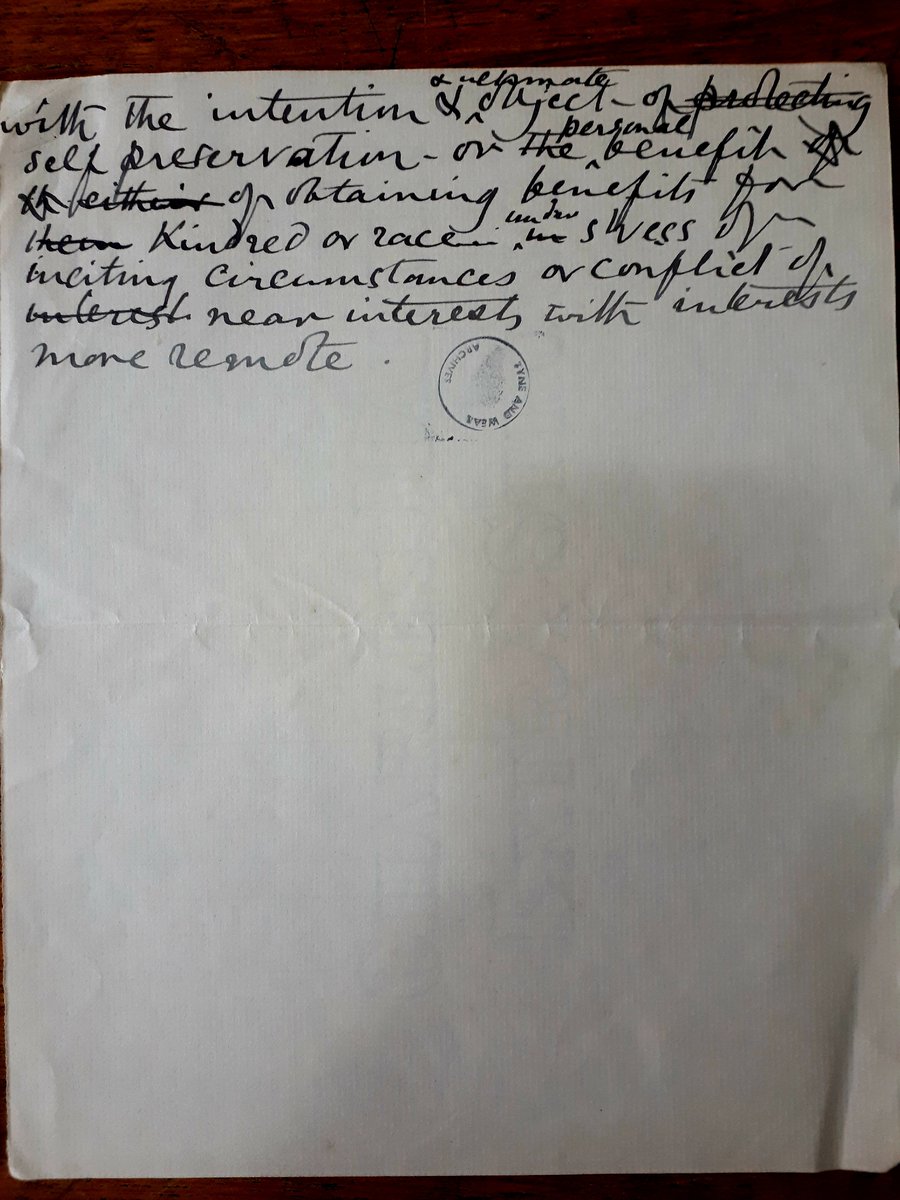 & ultimate
with the intention & object - of protecting
personal
self preservation - or the benefit of
either of obtaining benefits for
them Kindred or race under in stress of
inciting circumstances or conflict of
interest near interests with interests
more remote.
TYNE AND WEAR ARCHIVES